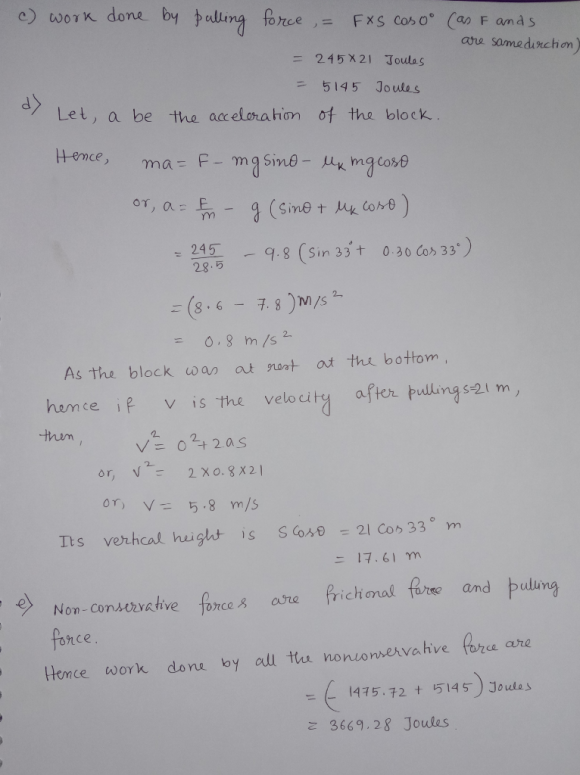 c) work done by pulling force, = F×S cos0° (as F and s
are same direction)
= 245×21 Joules
= 5145 Joules
d) Let, a be the acceleration of the block.
Hence, ma = F - mg sinθ - μk mg cosθ
or, a = F/m - g (sinθ + μk cosθ)
= 245/28.5 - 9.8 (sin 33° + 0.30 cos 33°)
= (8.6 - 7.8) m/s²
= 0.8 m/s²
As the block was at rest at the bottom,
hence if v is the velocity after pulling s=21 m,
then, v² = 0² + 2as
or, v² = 2×0.8×21
or, v = 5.8 m/s
Its vertical height is S cosθ = 21 cos 33° m
= 17.61 m
e) Non-conservative forces are frictional force and pulling
force.
Hence work done by all the nonconservative force are
= (- 1475.72 + 5145) Joules
= 3669.28 Joules